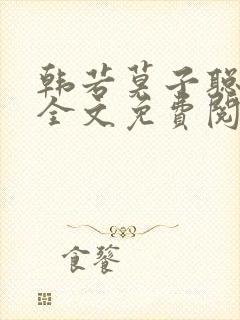 韩若莫子聪
全文免费阅
食饕